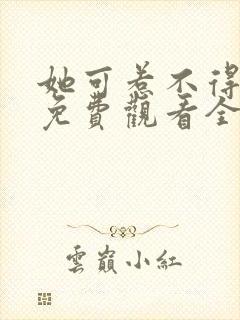 她可惹不得
免費觀看全
雲巔小紅